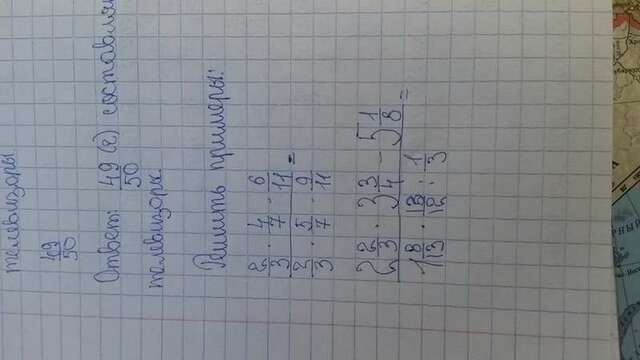 телевизоры
49/50
Ответ: 49/50 (е) составля
телевизоры
Решить примеры:
2/3 · 4/7 · 6/11
2/3 · 5/7 · 9/11 =
2 2/3 · 3 3/4 - 5 1/8
1 8/13 · 13/12 : 1/3 =